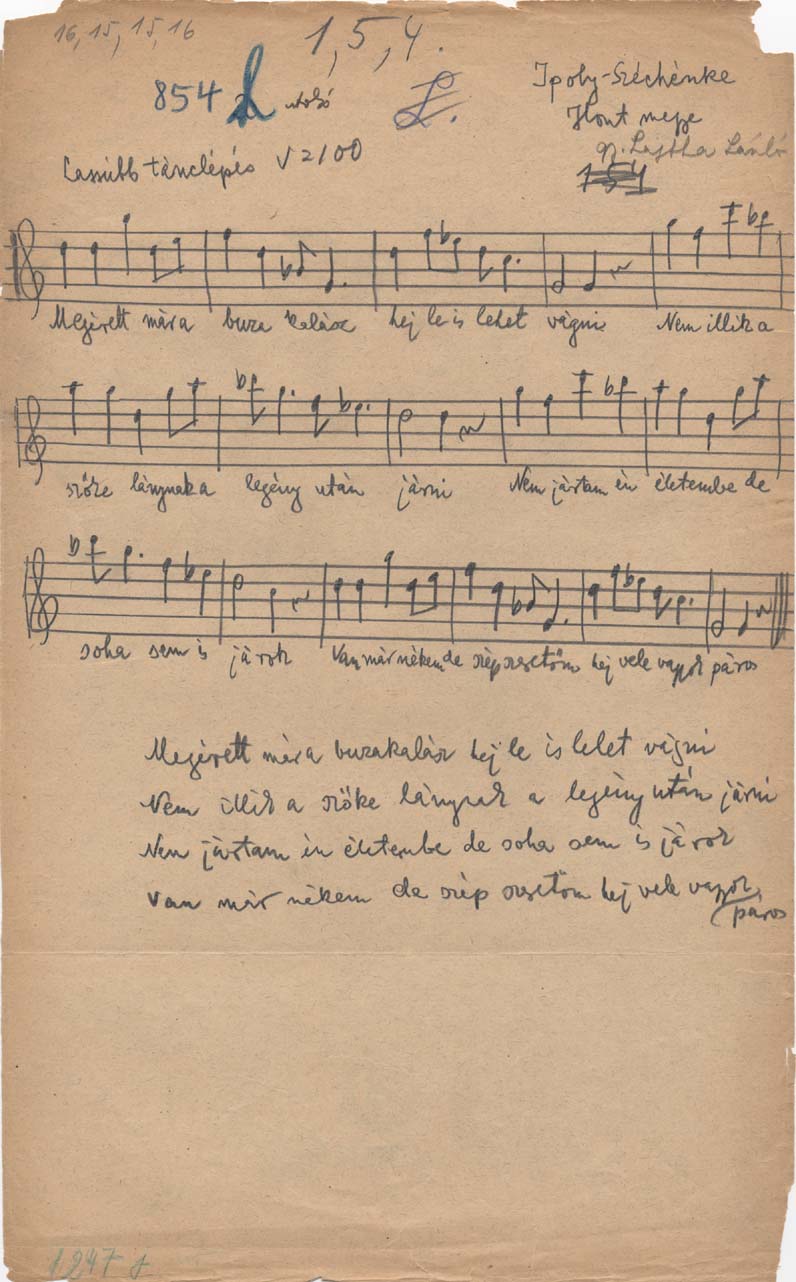 16, 15, 15, 16
1, 5, 4.
854 utolsó
L.
Ipoly-Szèchènke
Hont megye
gy. Lajtha László
151
Lassúbb tànclépés √ 2/100
Megèrett màra buza kalàsz hej le is lehet vàgni Nem illik a
szőke lánynak a legény utàn jàrni Nem jàrtam èn életembe de
soha sem is jàrok Van màr nèkem de szèp szeretöm hej vele vagyok páros
Megèrett màra buzakalàsz hej le is lehet vàgni
Nem illik a szőke lánynak a legény után jàrni
Nem jàrtam èn életembe de soha sem is jàrok
Van màr nèkem de szèp szeretöm hej vele vagyok
páros
1247